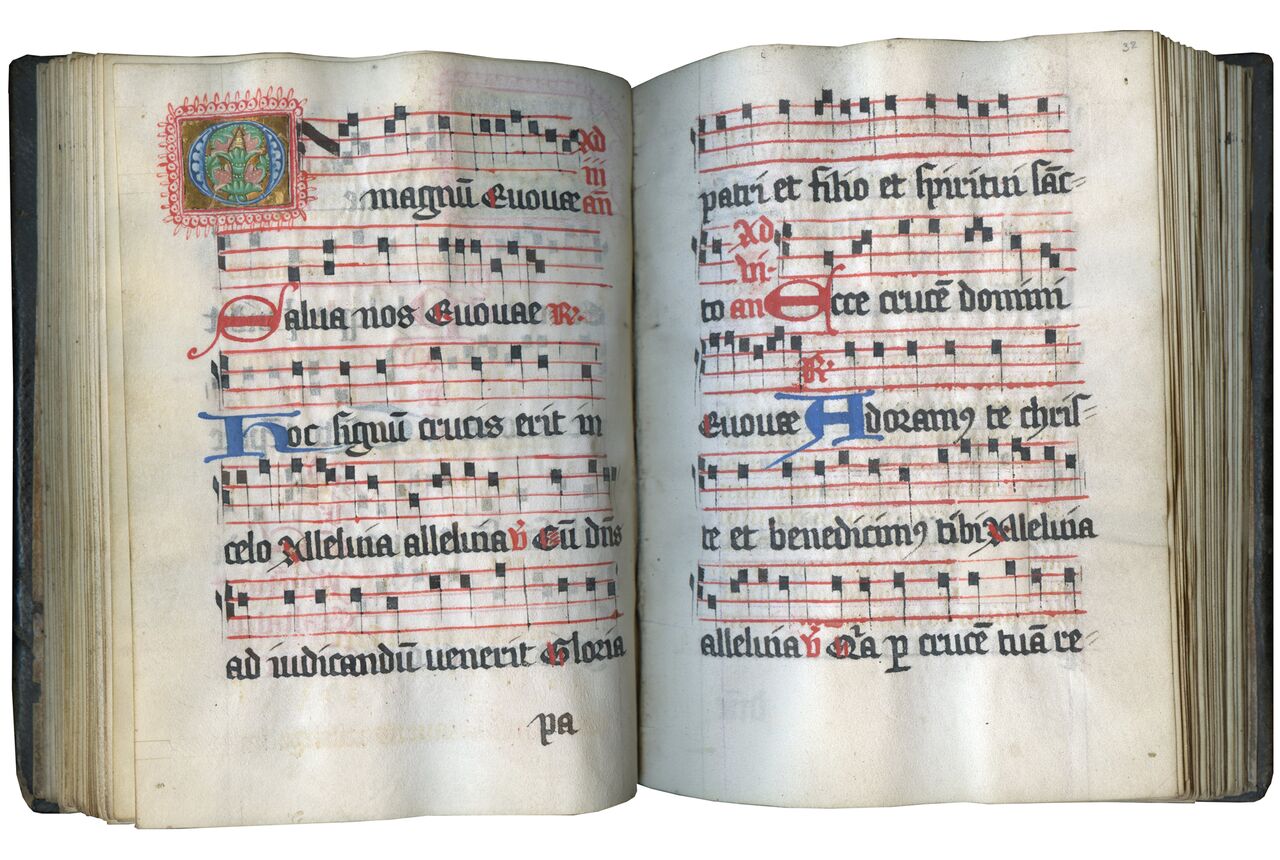 O magnū Euouae Ad iii an̄
Salua nos Euouae R.
Hoc signū crucis erit in
celo Alleluia alleluia v̄ Cū dn̄s
ad iudicandū uenerit Gloria
pa
32
patri et filio et spiritui sāc-
Ad vi-
to an Ecce crucē domini
R.
Euouae Adoramꝰ te chris-
te et benedicimꝰ tibi Alleluia
alleluia v̄ Qr̄a ꝑ crucē tuā re-